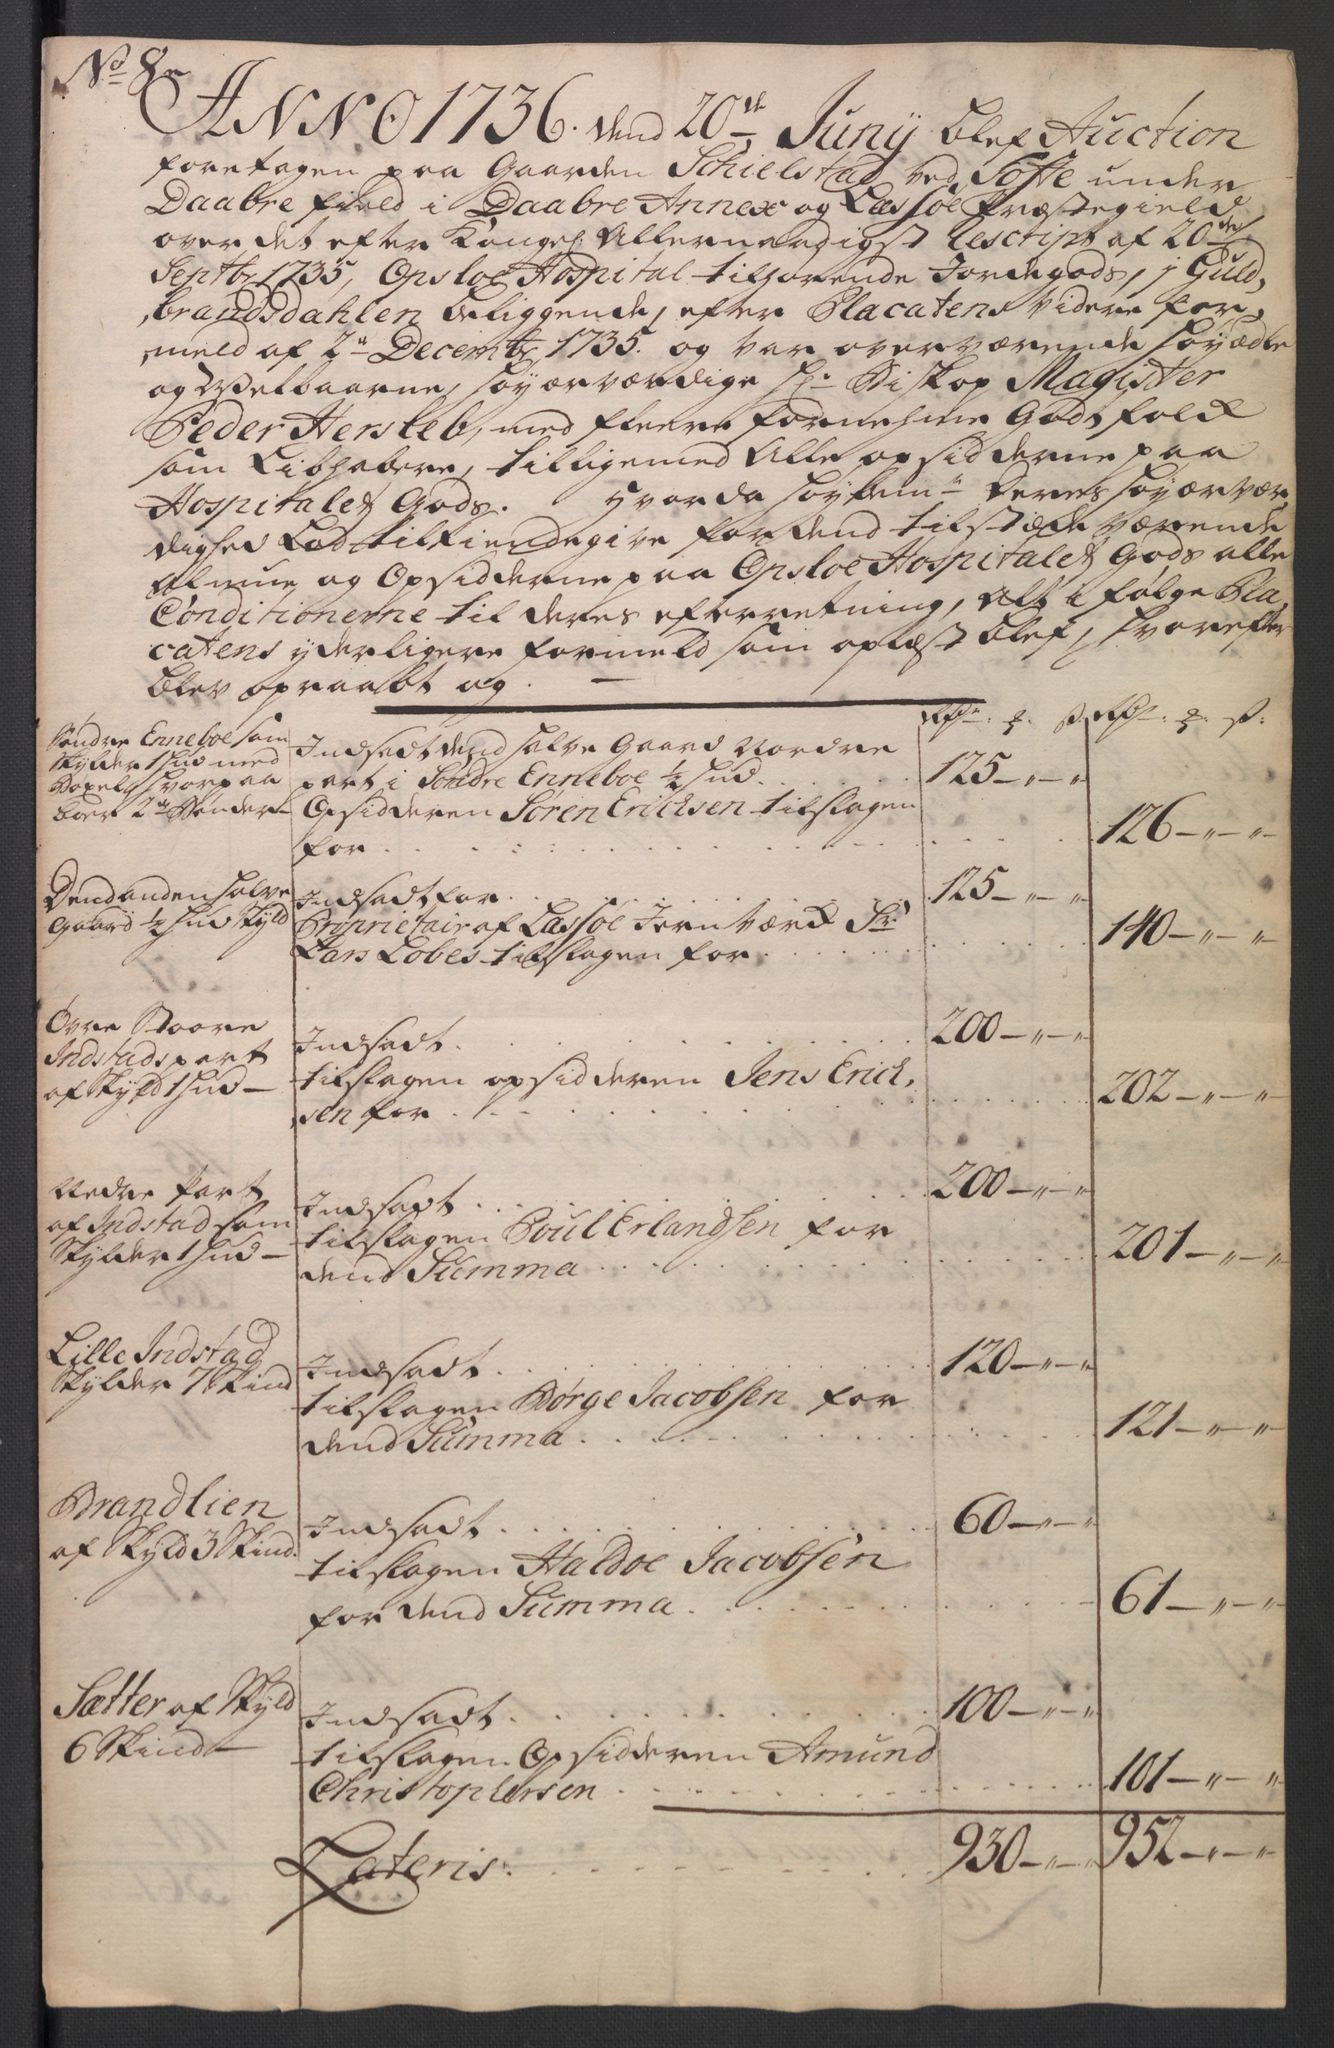 No 8
ANNO 1736. dend 20de Junij blef Auction
foretagen paa Gaarden Schielstad ved Tofte under
Daabre field i Daabre Annex og Læssøe Præstegield
over det efter Kongel: Allernaadigst Rescript af 20des
Septbr 1735, Opsloe Hospital tilhørende Jordegods, j Guld,
brandsdahlen beliggende, efter Placatens videre for,
meld af 2n Decembr 1735. og var overværende Høyædle
og Velbaarne, Høyærværdige Hr. Biskop Magister
Peder Hersleb, med fleere fornehme Godtfolck
som Liebhabere, tilligemed Alle opsidderne paa
Hospitalets Gods. Hvorda høybem.te Deres Høyærvær
dighed Lod tilkiendegive for dend tilstæde værende
Almue og Opsidderne paa Opsloe Hospitalets Gods alle
Conditionerne til deres efterretning, Alt i følge Pla,
catens yderligere formeld som oplæst blef, Hvorefter
blev opraabt og.
Rdr. ƶ. ß. Rdr. ƶ. ß.
Søndre Enneboe som
skylder 1 hud med
Bøxel, hvorpaa
boer 2de Mænder
Indsadt dend halve Gaard Nordre
part i Søndre Enneboe ½ hud. 125 – „ – „
Opsidderen Søren Erichsen tilslagen
for 126 – „ – „
Dend anden halve
Gaard ½ hud skyld
Indsadt for 125 – „ – „
Proprietair af Læssøe Jernværck Sr.
Lars Lobes tilslagen for 140 – „ – „
Øvre Stoore
Indstads part
af skyld 1 hud –
Indsadt 200 – „ – „
tilslagen opsidderen Jens Erich,
sen for 202 – „ – „
Nedre Part
af Indstad som
skylder 1 hud –
Indsadt 200 – „ – „
tilslagen Poul Erlandsen for
dend Summa 201 – „ – „
Lille Indstad
skylder 7 skind
Indsadt 120 – „ – „
tilslagen Børge Jacobsen for
dend Summa 121 – „ – „
Brandlien
af skyld 3 skind.
Indsadt 60 – „ – „
tilslagen Haldoe Jacobsen
for dend Summa 61 – „ – „
Sætter af skyld
6 skind –
Indsadt 100 – „ – „
tilslagen Opsidderen Amund
Christophersen 101 – „ – „
Lateris. 930 – „ – „ 952 – „ – „